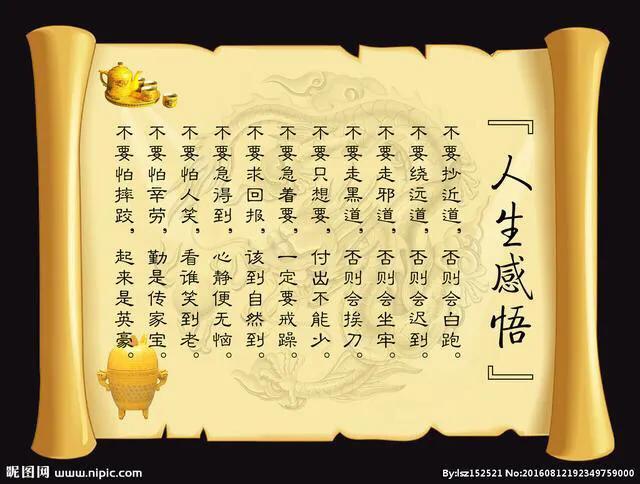 『人生感悟』
不要抄近道，否则会白跑。
不要绕远道，否则会迟到。
不要走邪道，否则会坐牢。
不要走黑道，否则会挨刀。
不要只想要，付出不能少。
不要急着要，一定要戒躁。
不要求回报，该到自然到。
不要急得到，心静便无恼。
不要怕人笑，看谁笑到老。
不要怕辛劳，勤是传家宝。
不要怕摔跤，起来是英豪。
昵图网 www.nipic.com
By:lsz152521 No:20160812192349759000